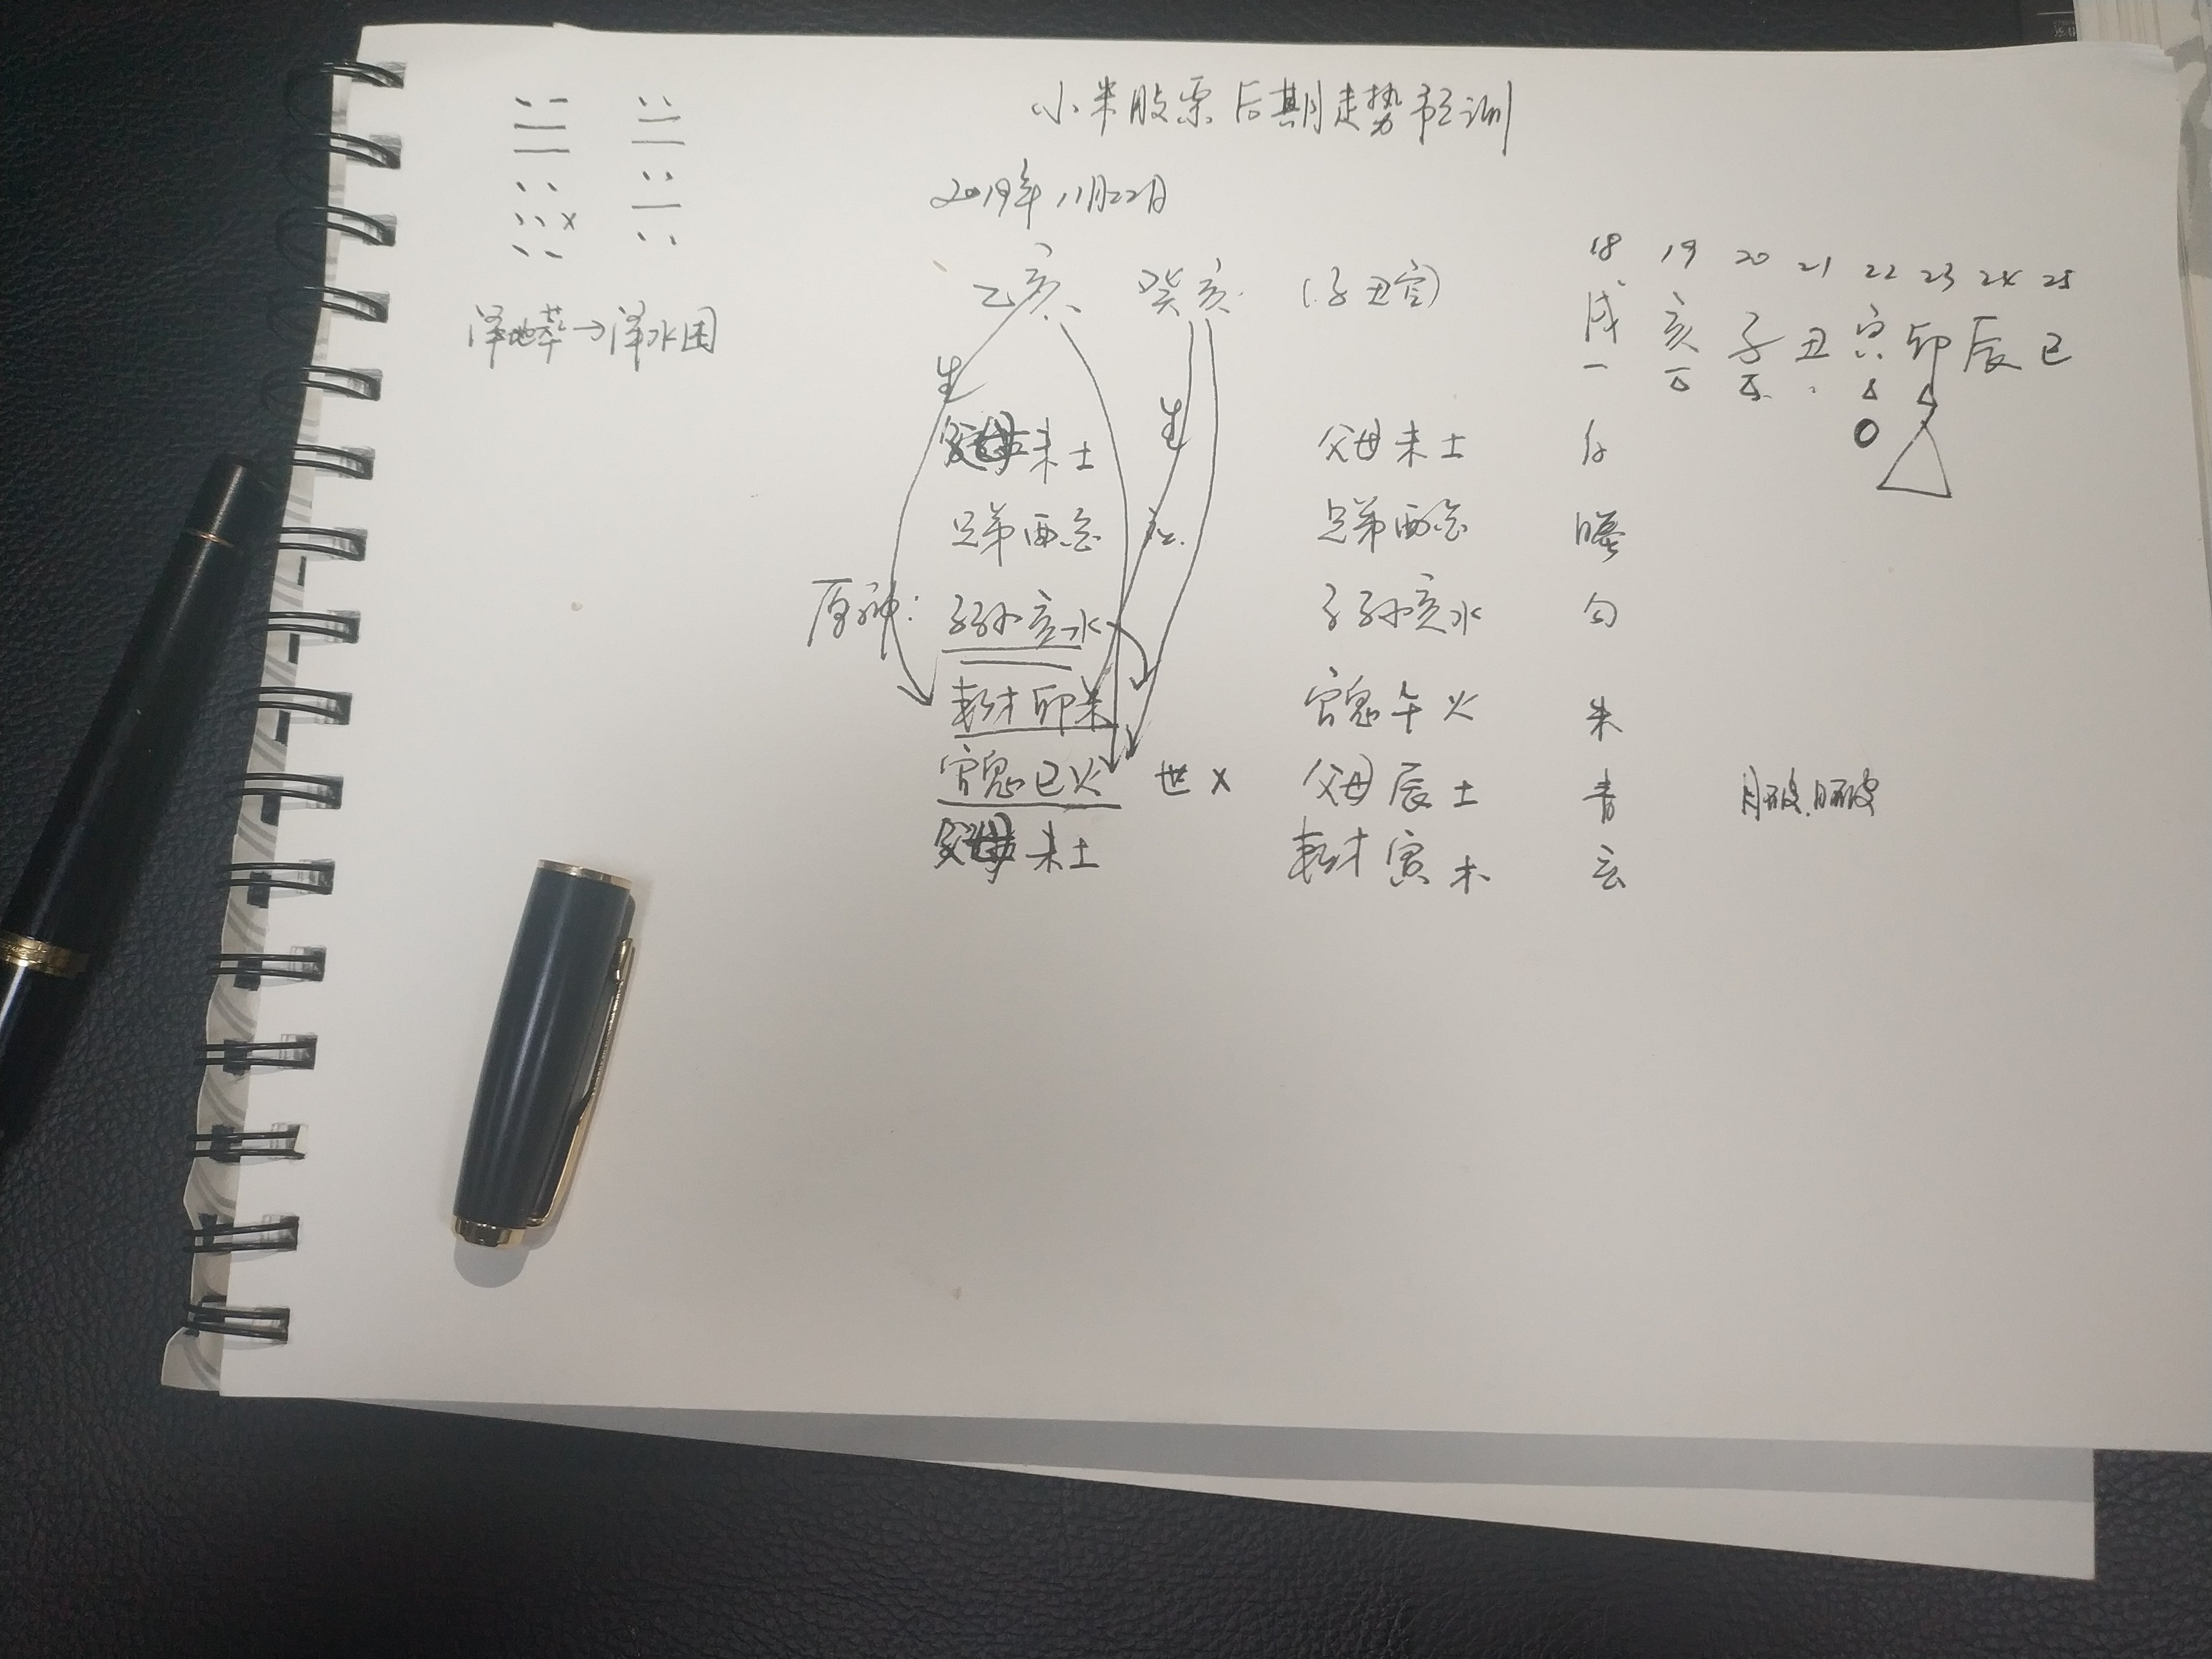 小米股票后期走势预测
2019年11月22日
乙亥 癸亥 (子丑空)
18 19 20 21 22 23 24 25
戌 亥 子 丑 寅 卯 辰 巳
泽地萃→泽水困
生
生
父母未土 父母未土 白
兄弟酉金 应 兄弟酉金 螣
原神: 子孙亥水 子孙亥水 勾
妻财卯木 官鬼午火 朱
官鬼巳火 世 X 父母辰土 青 月破.日破
父母未土 妻财寅木 玄